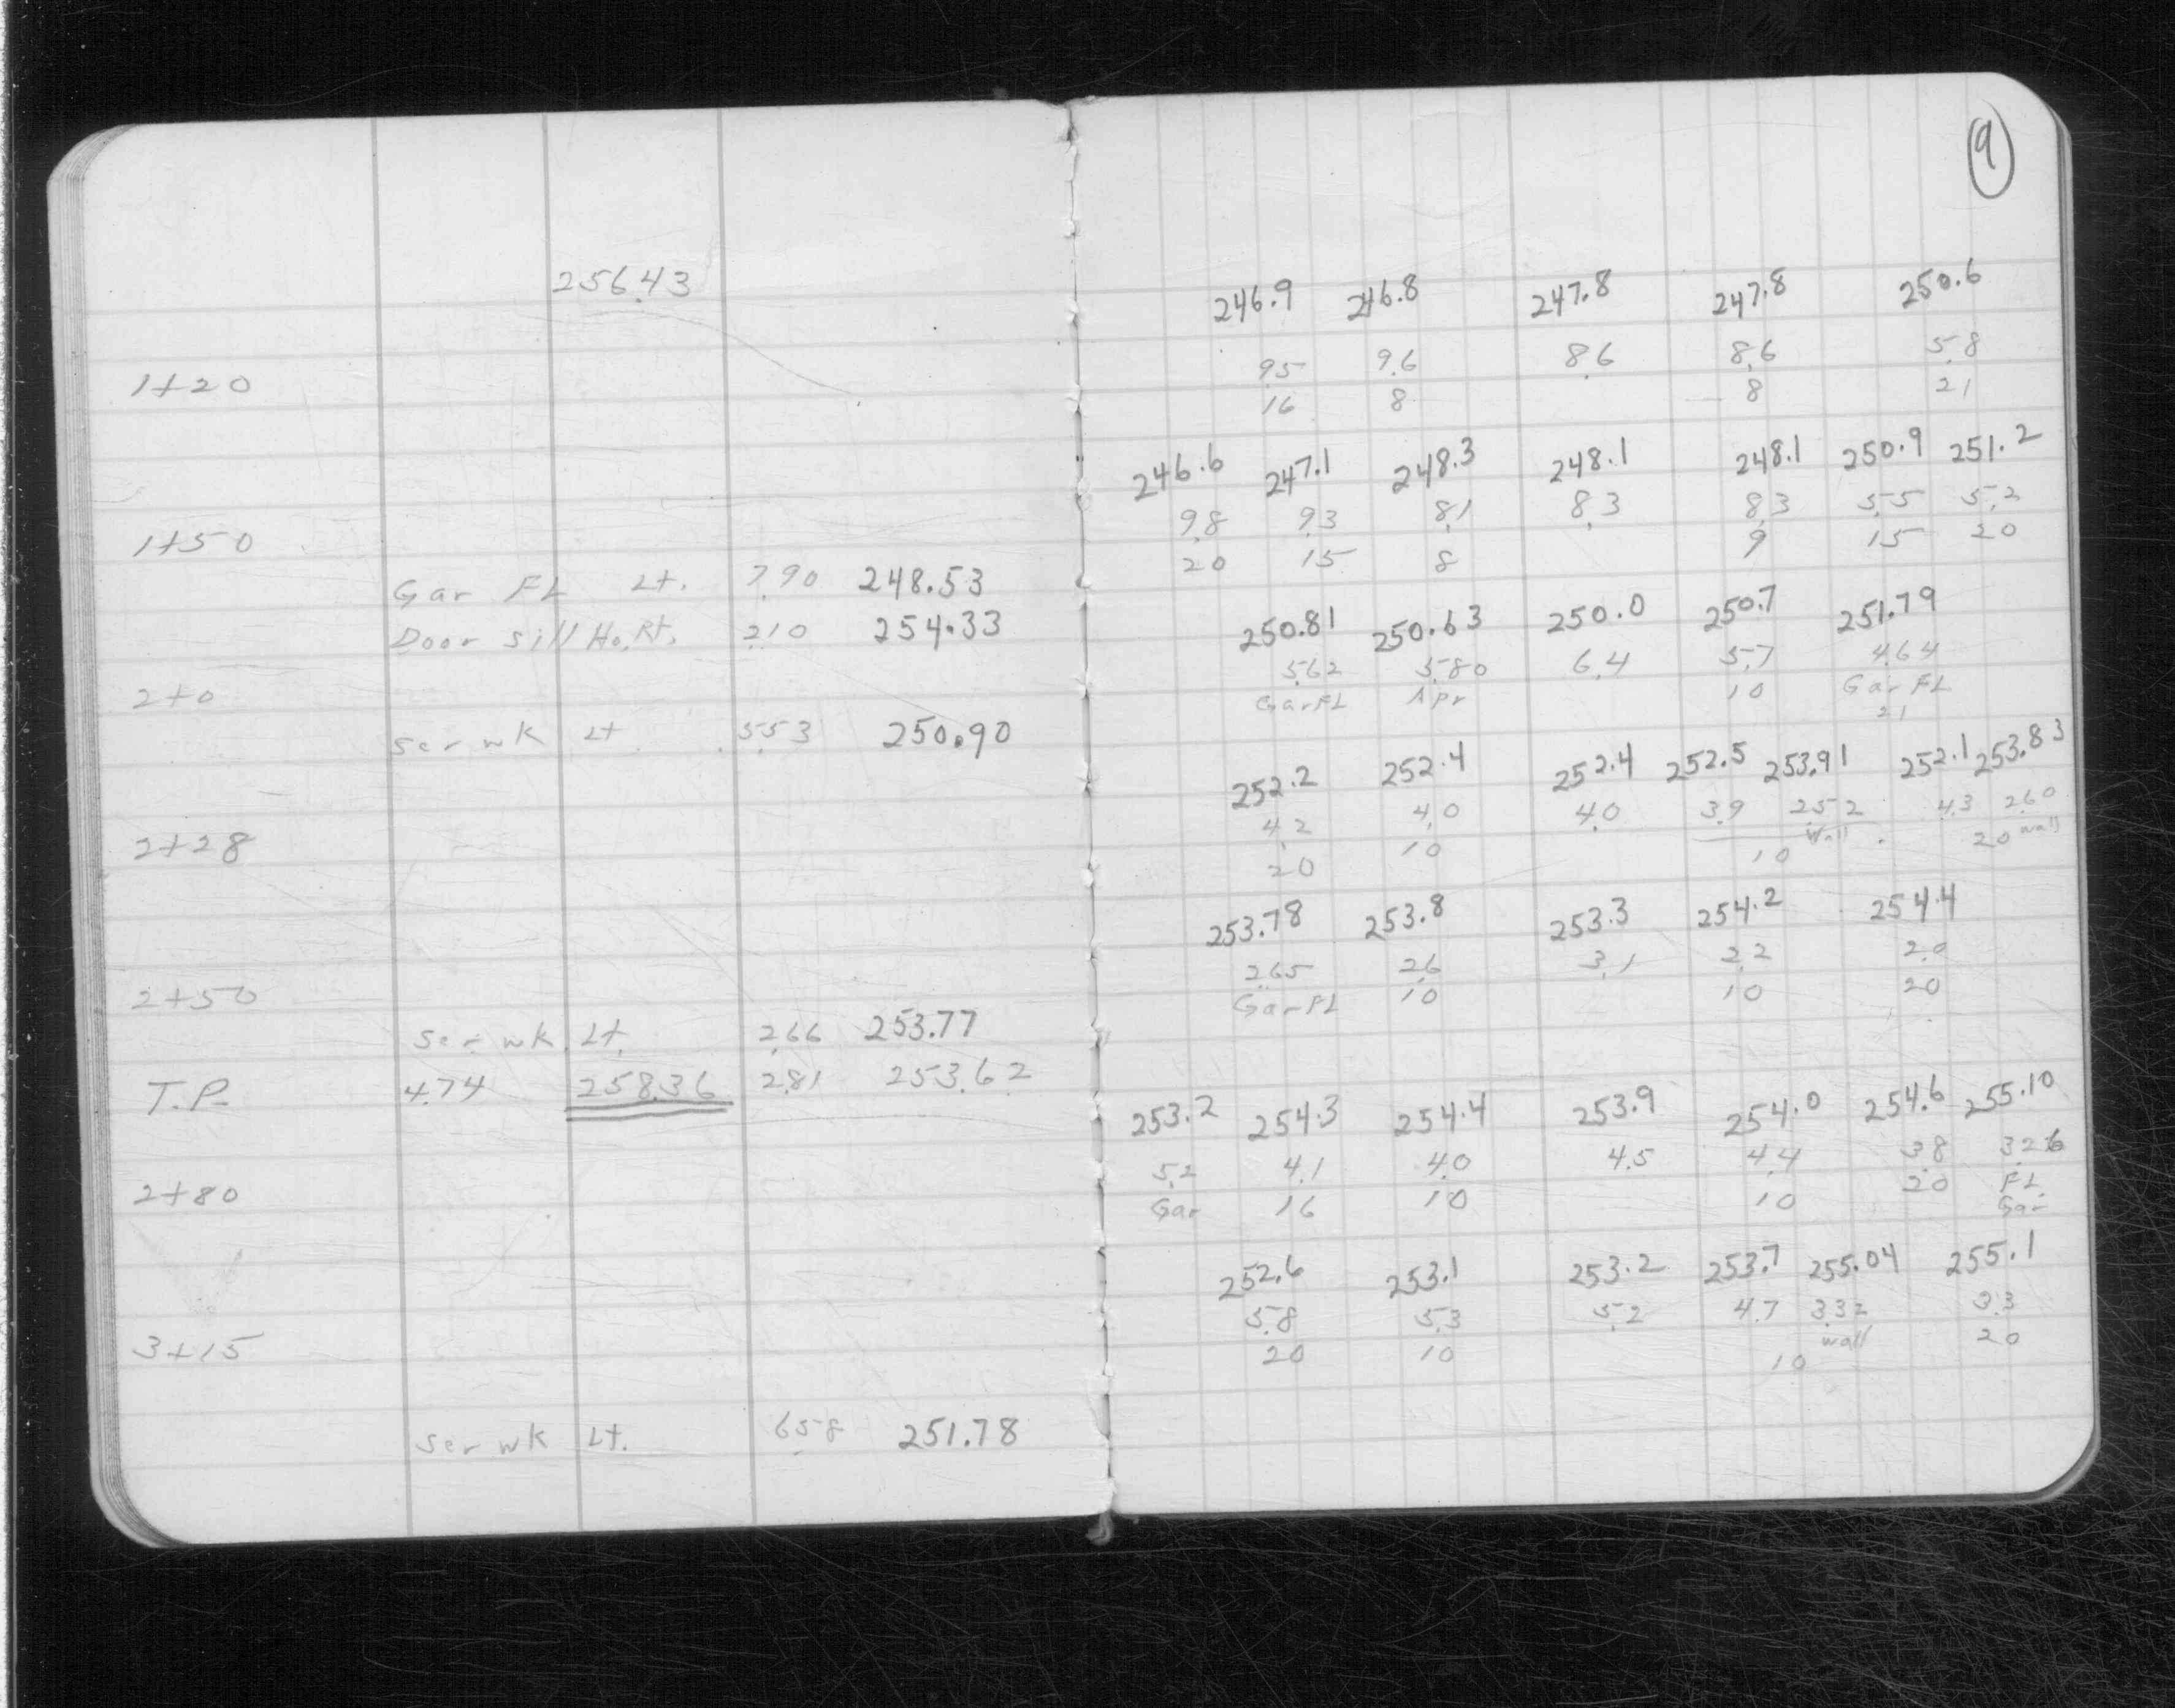 256.43
1+20
1+50
Gar FL Lt. 7.90 248.53
Door sill Ho. Rt. 2.10 254.33
2+0
Ser wk Lt. 5.53 250.90
2+28
2+50
Ser wk Lt. 2.66 253.77
T.P. 4.74 258.36 2.81 253.62
2+80
3+15
Ser wk Lt. 6.58 251.78
9
246.9 246.8 247.8 247.8 250.6
9.5 9.6 8.6 8.6 5.8
16 8 8 21
246.6 247.1 248.3 248.1 248.1 250.9 251.2
9.8 9.3 8.1 8.3 8.3 5.5 5.2
20 15 8 9 15 20
250.81 250.63 250.0 250.7 251.79
5.62 5.80 6.4 5.7 4.64
Gar FL Apr 10 Gar FL
21
252.2 252.4 252.4 252.5 253.91 252.1 253.83
4.2 4.0 4.0 3.9 2.52 4.3 2.60
20 10 10 Wall 20 wall
253.78 253.8 253.3 254.2 254.4
2.65 2.6 3.1 2.2 2.0
Gar FL 10 10 20
253.2 254.3 254.4 253.9 254.0 254.6 255.10
5.2 4.1 4.0 4.5 4.4 3.8 3.26
Gar 16 10 10 20 FL
Gar
252.6 253.1 253.2 253.7 255.04 255.1
5.8 5.3 5.2 4.7 3.32 3.3
20 10 10 wall 20